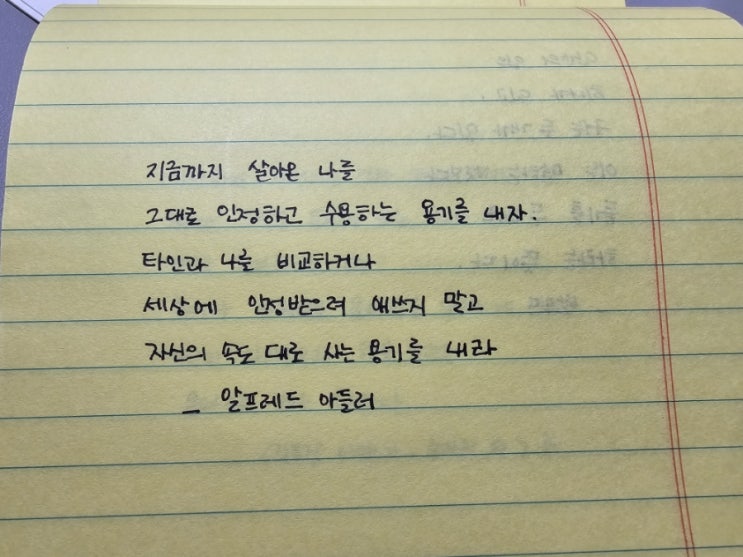 지금까지 살아온 나를
그대로 인정하고 수용하는 용기를 내자.
타인과 나를 비교하거나
세상에 인정받으려 애쓰지 말고
자신의 속도 대로 사는 용기를 내라
_ 알프레드 아들러